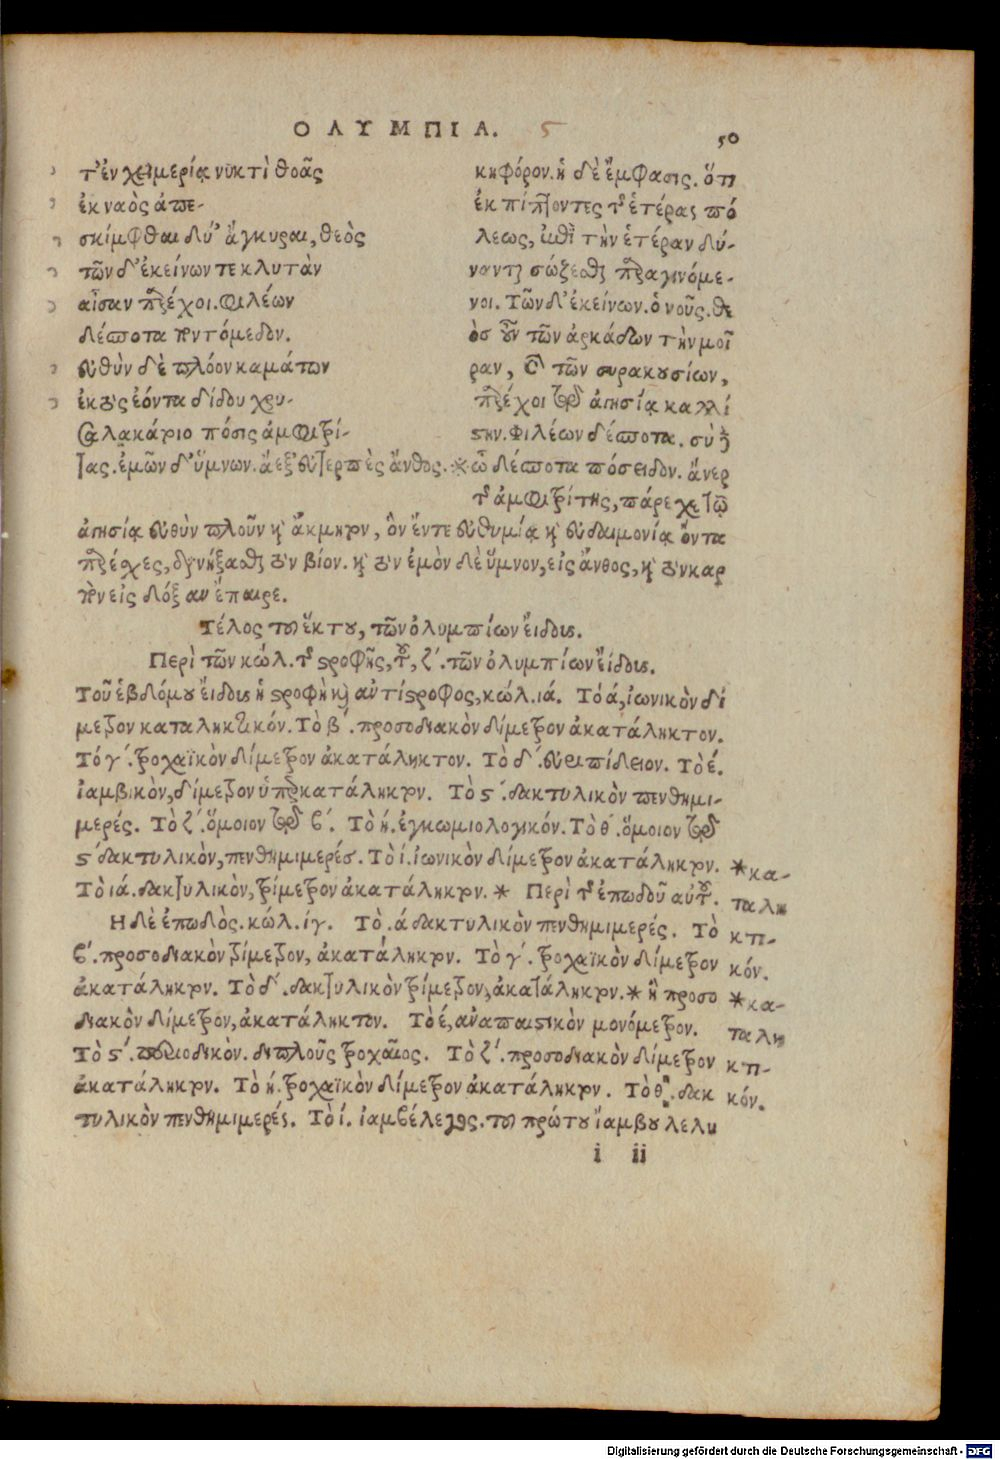 ΟΛΥΜΠΙΑ. 5
50
τ' ἐν χειμερίᾳ νυκτὶ θοᾶς
ἐκ ναὸς ἀπε-
σκίμφθαι δύ' ἄγκυραι, θεὸς
τῶν δ' ἐκείνων τε κλυτὰν
αἶσαν παρέχοι. φιλέων
δέσποτα ποντόμεδον.
εὐθὺν δὲ πλόον καμάτων
ἐκτὸς ἐόντα δίδου χρυ-
σαλακάτοιο πόσις ἀμφιτρί-
τας. ἐμῶν δ' ὕμνων. ἄεξ' εὐτερπὲς ἄνθος.
κηφόρον. ἡ δὲ ἔμφασις. ὅτι
ἐκπίπτοντες τῆς ἑτέρας πό
λεως, μετὰ τὴν ἑτέραν δύ-
νανται σώζεσθαι παραγινόμε-
νοι. Τῶν δ' ἐκείνων. ὁ νοῦς. θε
ὸς οὖν τῶν ἀρκάδων τὴν μοῖ
ραν, καὶ τῶν συρακουσίων,
παρέχοι τῷ ἁγησίᾳ καλλί
στην. Φιλέων δέσποτα. σὺ δὲ
※ ὦ δέσποτα πόσειδον. ἄνερ
τῆς ἀμφιτρίτης, πάρεχε τῷ
ἁγησίᾳ εὐθὺν πλοῦν καὶ ἄκμητον, ὃν ἔν τε εὐθυμίᾳ καὶ εὐδαιμονίᾳ ὄντα
παρέχες, διηνύξασθαι τὸν βίον. καὶ τὸν ἐμὸν δὲ ὕμνον, εἰς ἄνθος, καὶ τὸν καρ
πὸν εἰς δόξαν ἔπαιρε.
Τέλος τοῦ ἕκτου, τῶν ὀλυμπίων εἴδους.
Περὶ τῶν κώλ. τῆς στροφῆς, τοῦ, ζ΄. τῶν ὀλυμπίων εἴδους.
Τοῦ ἑβδόμου εἴδους ἡ στροφὴ καὶ ἀντίστροφος, κώλ. ιά. Τὸ ά, ἰωνικὸν δί
μετρον καταληκτικόν. Τὸ β΄. προσοδιακὸν δίμετρον ἀκατάληκτον.
Τό γ΄. τροχαϊκὸν δίμετρον ἀκατάληκτον. Τὸ δ΄. εὐριπίδειον. Τὸ έ.
ἰαμβικὸν, δίμετρον ὑπερκατάληκτον. Τὸ ϛ΄. δακτυλικὸν πενθημι-
μερές. Τὸ ζ΄. ὅμοιον τῷ β΄. Τὸ ή. ἐγκωμιολογικόν. Τὸ θ΄. ὅμοιον τῷ
ϛ΄ δακτυλικὸν, πενθημιμερές. Τὸ ί. ἰωνικὸν δίμετρον ἀκατάληκτον.
Τὸ ιά. δακτυλικὸν, τρίμετρον ἀκατάληκτον. * Περὶ τῆς ἐπωδοῦ αὐτοῦ.
Η δὲ ἐπωδὸς. κώλ. ίγ. Τὸ. ά δακτυλικὸν πενθημιμερές. Τὸ
β΄. προσοδιακὸν τρίμετρον, ἀκατάληκτον. Τὸ γ΄. τροχαϊκὸν δίμετρον
ἀκατάληκτον. Τὸ δ΄. δακτυλικὸν τρίμετρον, ἀκατάληκτον. * ἢ προσο
διακὸν δίμετρον, ἀκατάληκτον. Τὸ έ, ἀναπαιστικὸν μονόμετρον.
Τὸ ϛ΄. περιοδικὸν. διπλοῦς τροχαῖος. Τὸ ζ΄. προσοδιακὸν δίμετρον
ἀκατάληκτον. Τὸ ή. τροχαϊκὸν δίμετρον ἀκατάληκτον. Τὸ θ. δακ
τυλικὸν πενθημιμερές. Τὸ ί. ἰαμβέλεγος. τοῦ πρώτου ἰάμβου λελυ
* κα-
ταλη
κτι-
κόν.
* κα-
ταλη
κτι-
κόν.
i ii
Digitalisierung gefördert durch die Deutsche Forschungsgemeinschaft - DFG